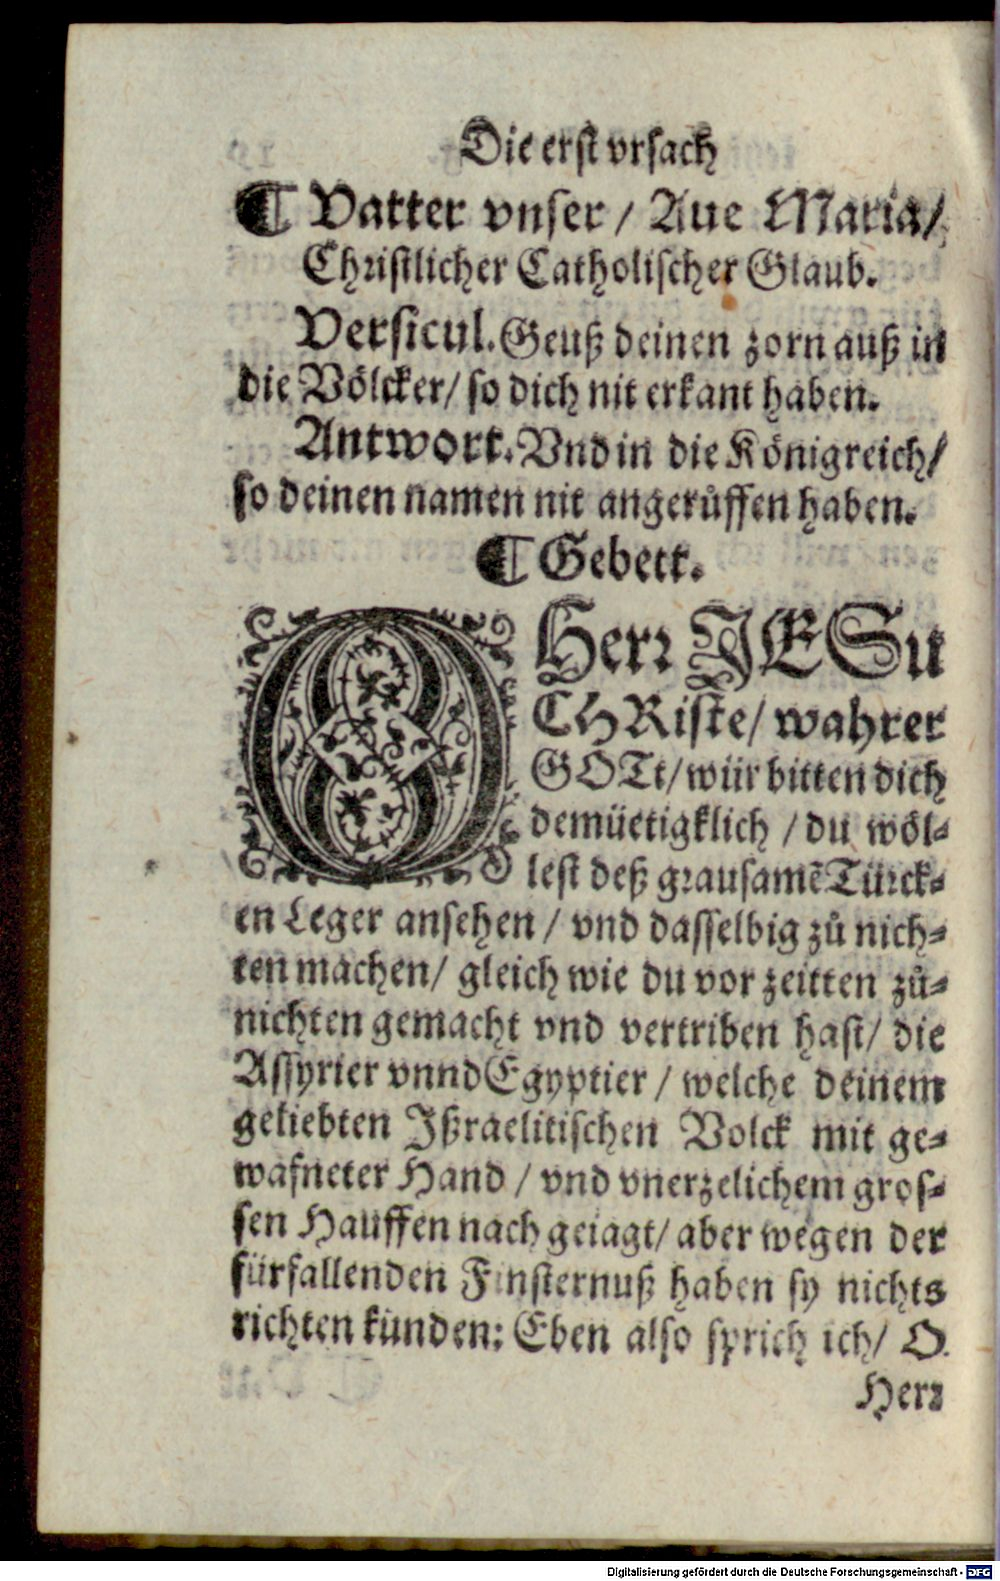 Die erst vrsach
¶ Vatter vnser / Aue Maria /
Christlicher Catholischer Glaub.
Versicul. Geuß deinen zorn auß in
die Völcker / so dich nit erkant haben.
Antwort. Vnd in die Königreich /
so deinen namen nit angerůffen haben.
¶ Gebett.
O Herr JESu
CHRiste / wahrer
GOTt / wür bitten dich
demüetigklich / du wöl-
lest deß grausamē Türck-
en Leger ansehen / vnd dasselbig zů nich-
ten machen / gleich wie du vor zeitten zů-
nichten gemacht vnd vertriben hast / die
Assyrier vnnd Egyptier / welche deinem
geliebten Jßraelitischen Volck mit ge-
wafneter Hand / vnd vnerzelichem gros-
sen Hauffen nach geiagt / aber wegen der
fürfallenden Finsternuß haben sy nichts
richten künden: Eben also sprich ich / O
Herr
Digitalisierung gefördert durch die Deutsche Forschungsgemeinschaft - DFG